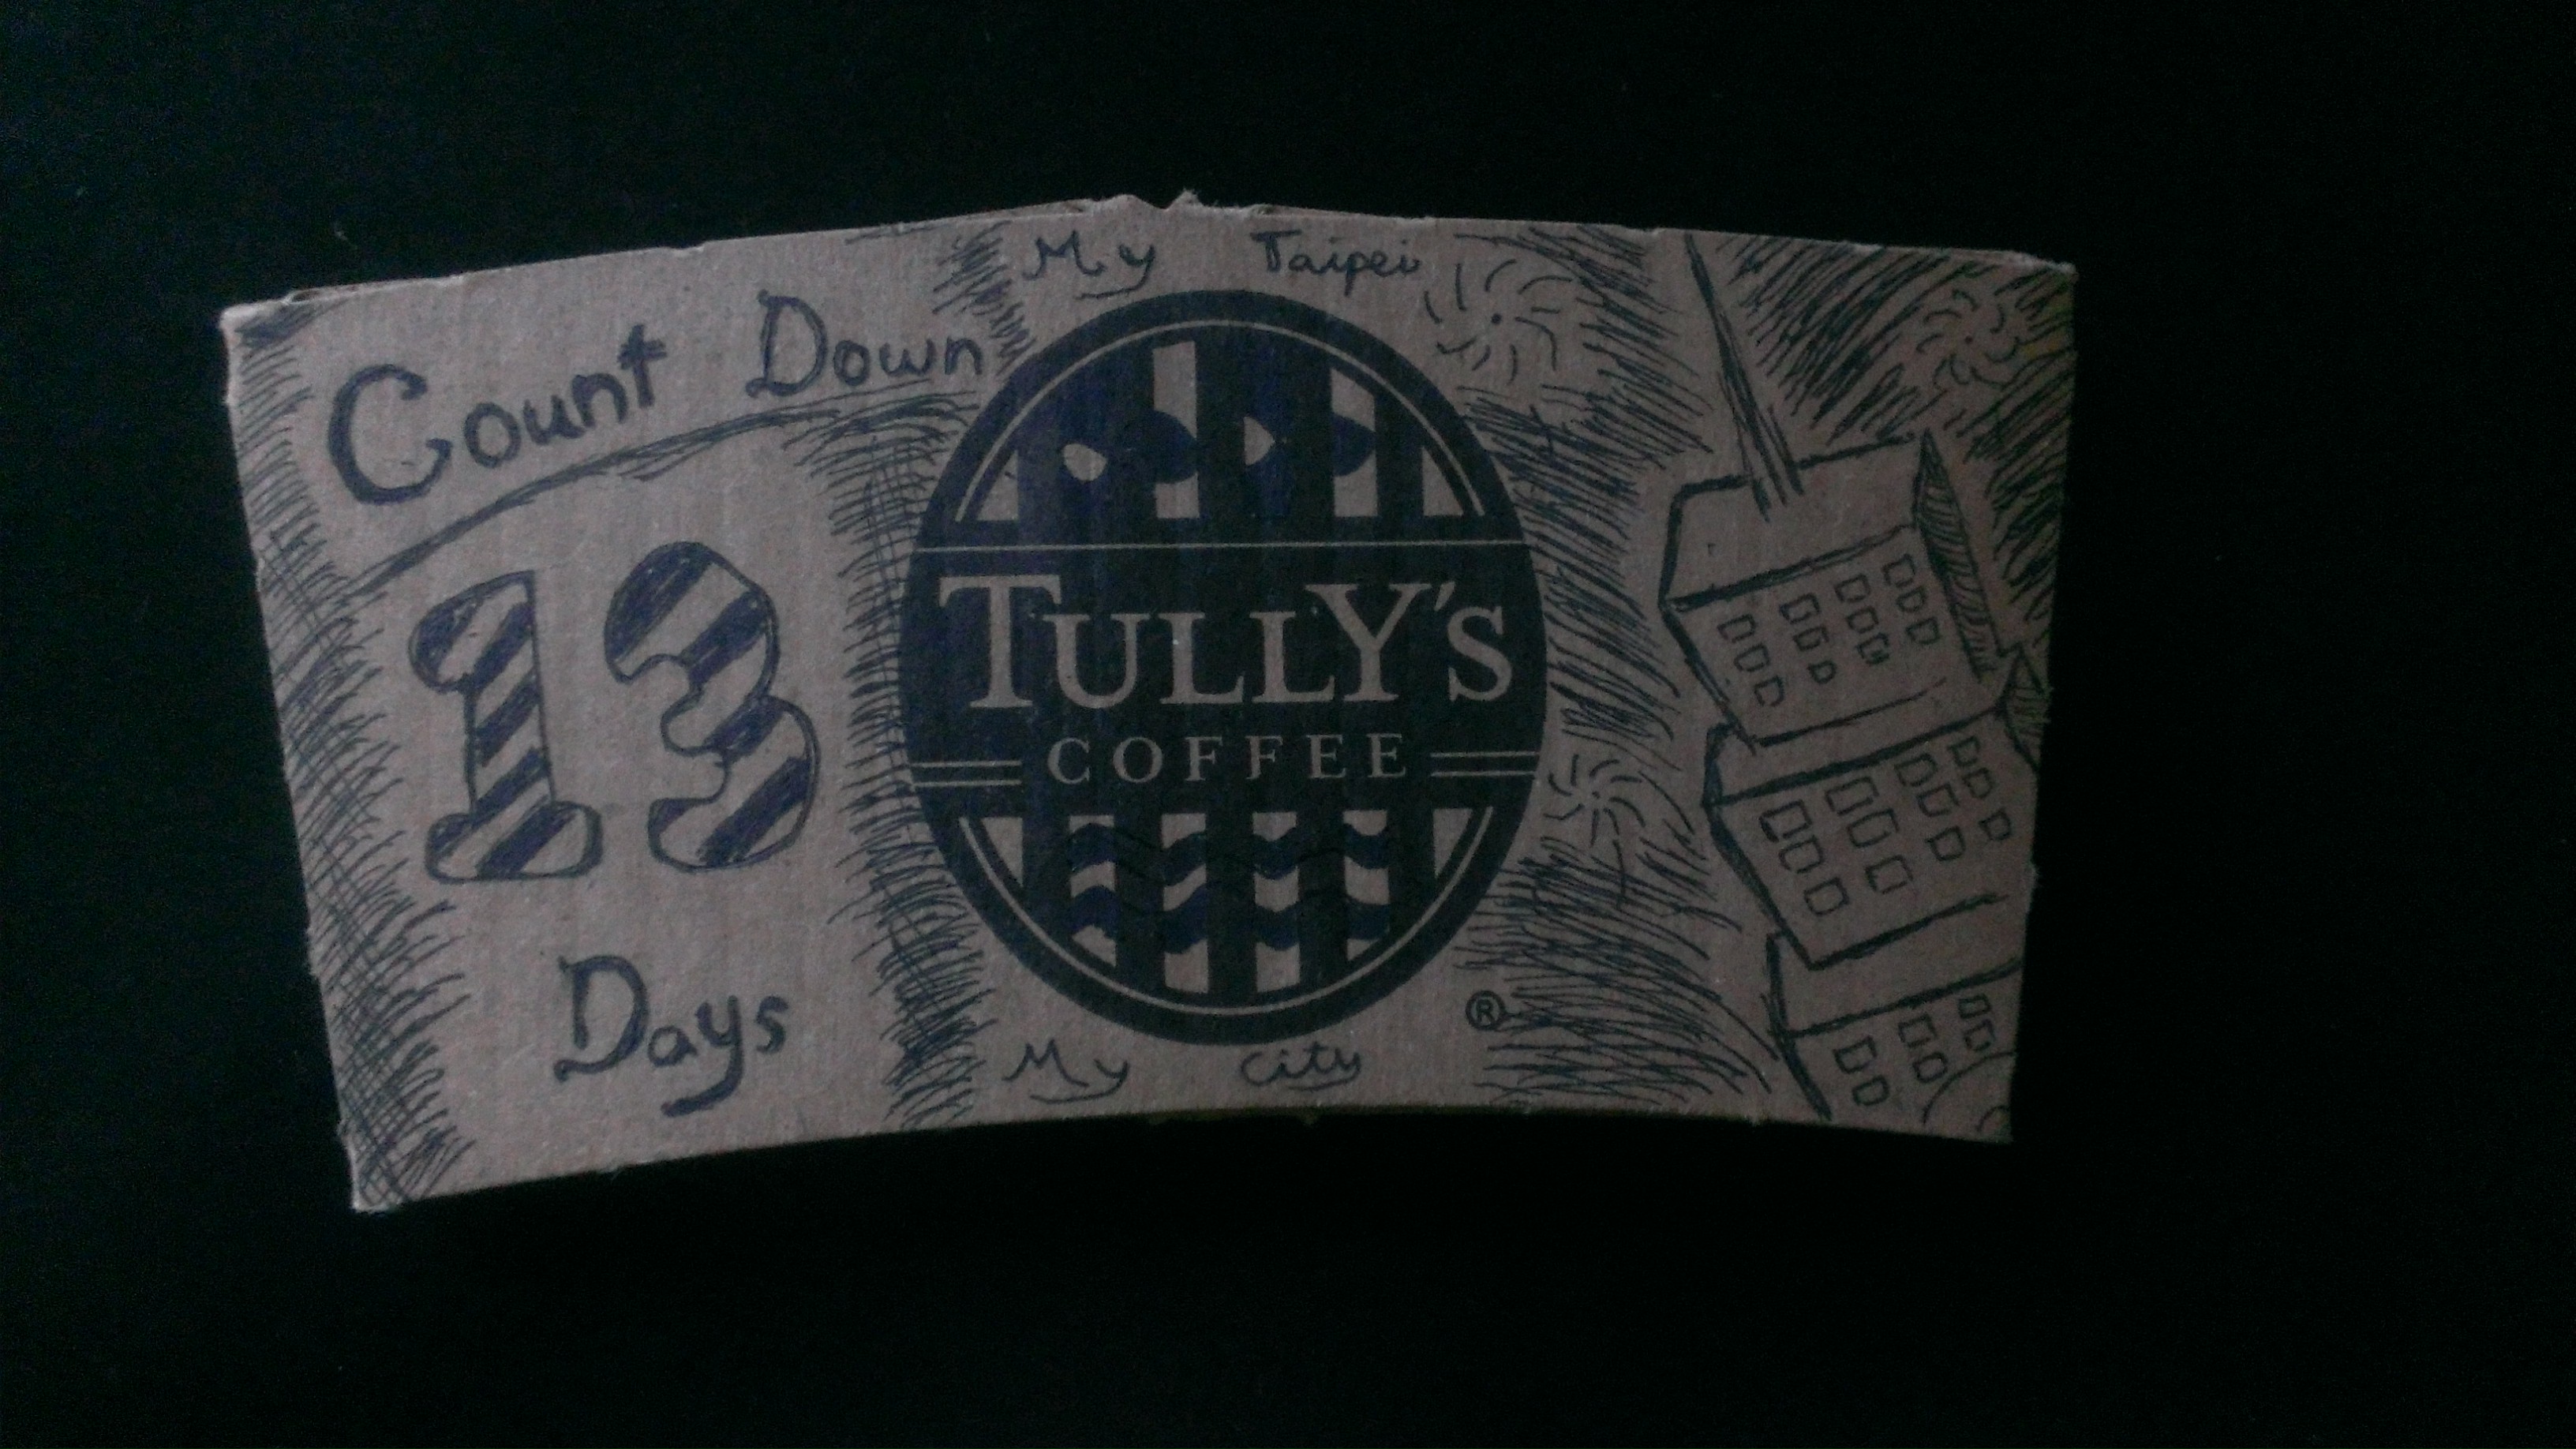 Count Down
13
Days
My Taipei
TULLY'S
COFFEE
®
My city